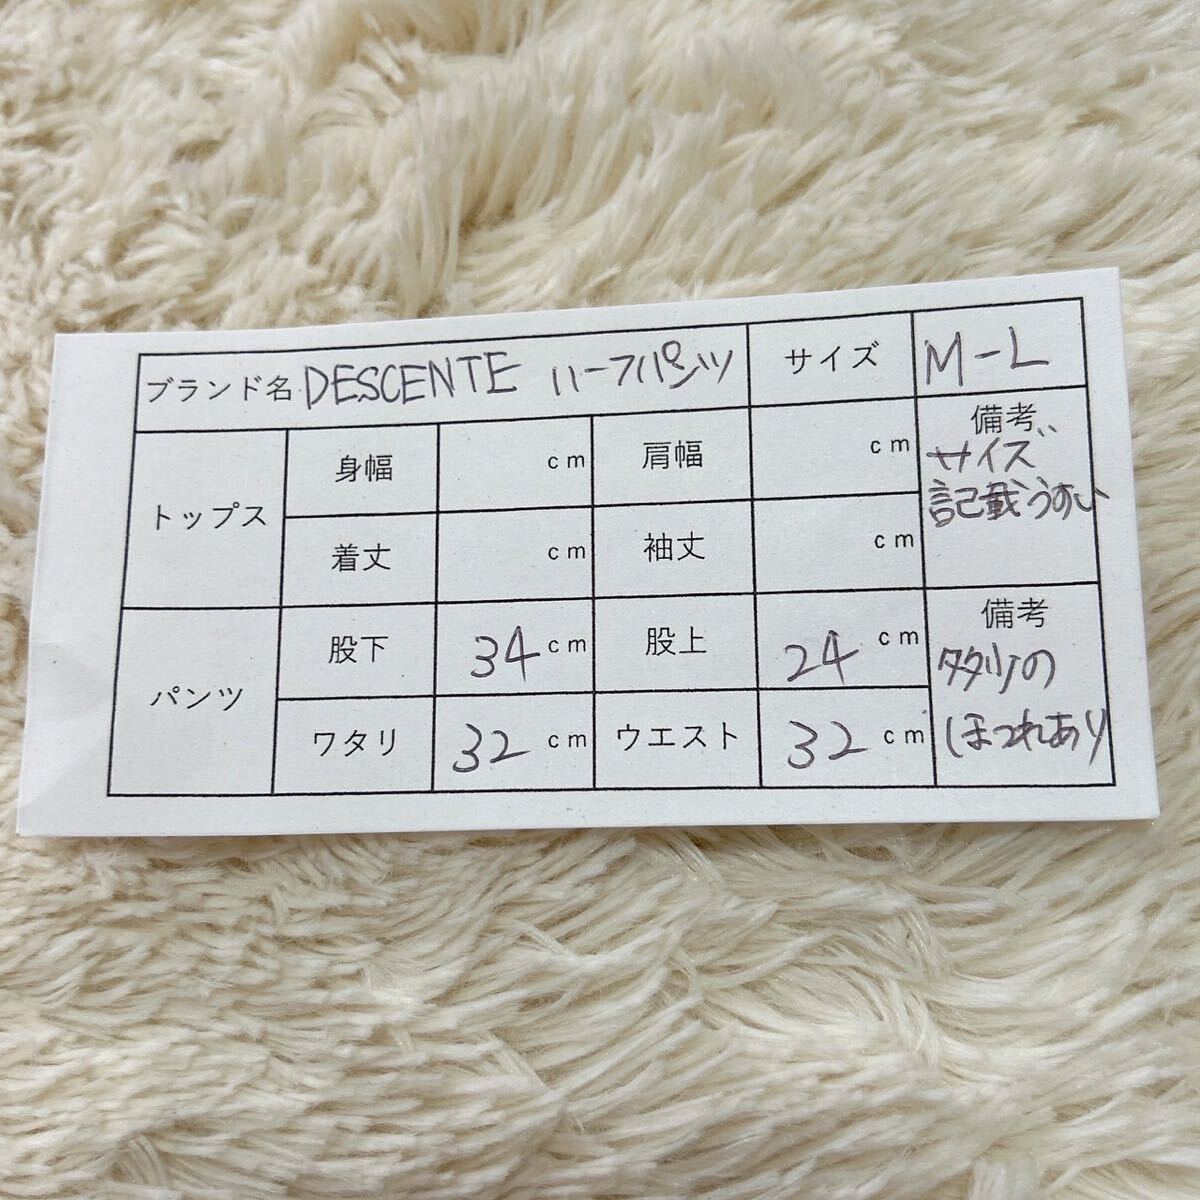 ブランド名 DESCENTE ハーフパンツ サイズ M-L
トップス 身幅 cm 肩幅 cm 備考
サイズ
記載うすい
着丈 cm 袖丈 cm
パンツ 股下 34 cm 股上 24 cm 備考
ワタリ 32 cm ウエスト 32 cm
の
ほつれあり